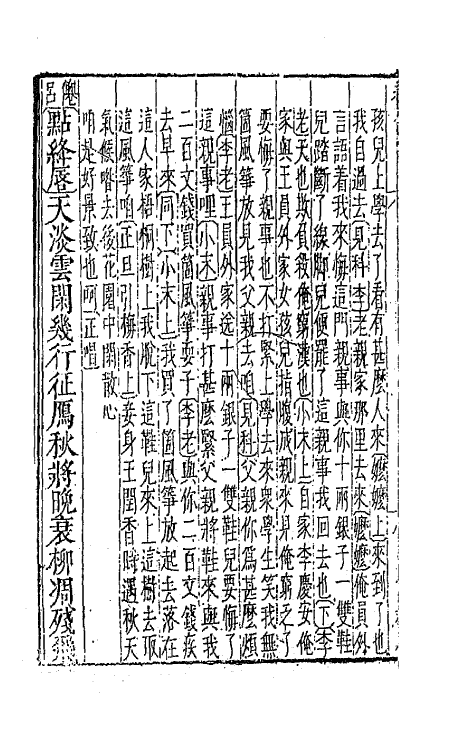 孩兒上學去了看有甚麽人來嬷嬷上來到了也
我自過去見科李老親家那里去來嬷嬷俺員外
言語着我來悔這門親事與你十兩銀子一雙鞋
兒踏斷了線脚兒便罷了這親事我回去也下李
老天也欺負殺俺窮漢也小末上自家李慶安俺
家與王員外家女孩兒指腹成親來見俺窮乏了
要悔了親事也不打緊上學去來衆學生笑我無
箇風箏放兒我父親去咱見科父親你爲甚麽煩
惱李老王員外家送十兩銀子一雙鞋兒要悔了
這親事哩小末親事打甚麽緊父親將鞋來與我
二百文錢買箇風箏耍子李老與你二百文錢疾
去早來同下小末上我買了箇風箏放起去落在
這人家梧桐樹上我脫下這鞋兒來上這樹去取
這風箏咱正旦引梅香上妾身王閏香時遇秋天
氣候喒去後花園中閑散心
咱是好景致也呵正唱
仙呂點絳唇天淡雲閑幾行征鴈秋將晚衰柳凋殘飛